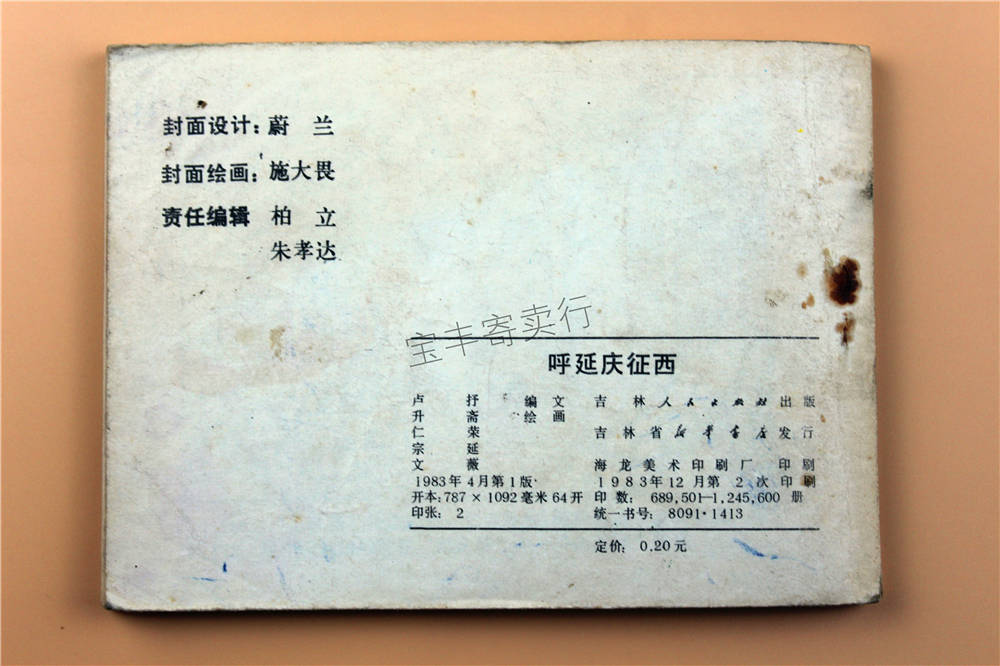 封面设计：蔚 兰
封面绘画：施大畏
责任编辑 柏 立
朱孝达
宝丰寄卖行
呼延庆征西
卢 抒 编文 吉林人民出版社出版
升 斋 绘画
仁 荣 吉林省新华书店发行
宗 延
文 薇 海龙美术印刷厂 印刷
1983年4月第1版 1983年12月第2次印刷
开本：787×1092毫米64开 印数：689,501—1,245,600 册
印张：2 统一书号：8091·1413
定价：0.20元